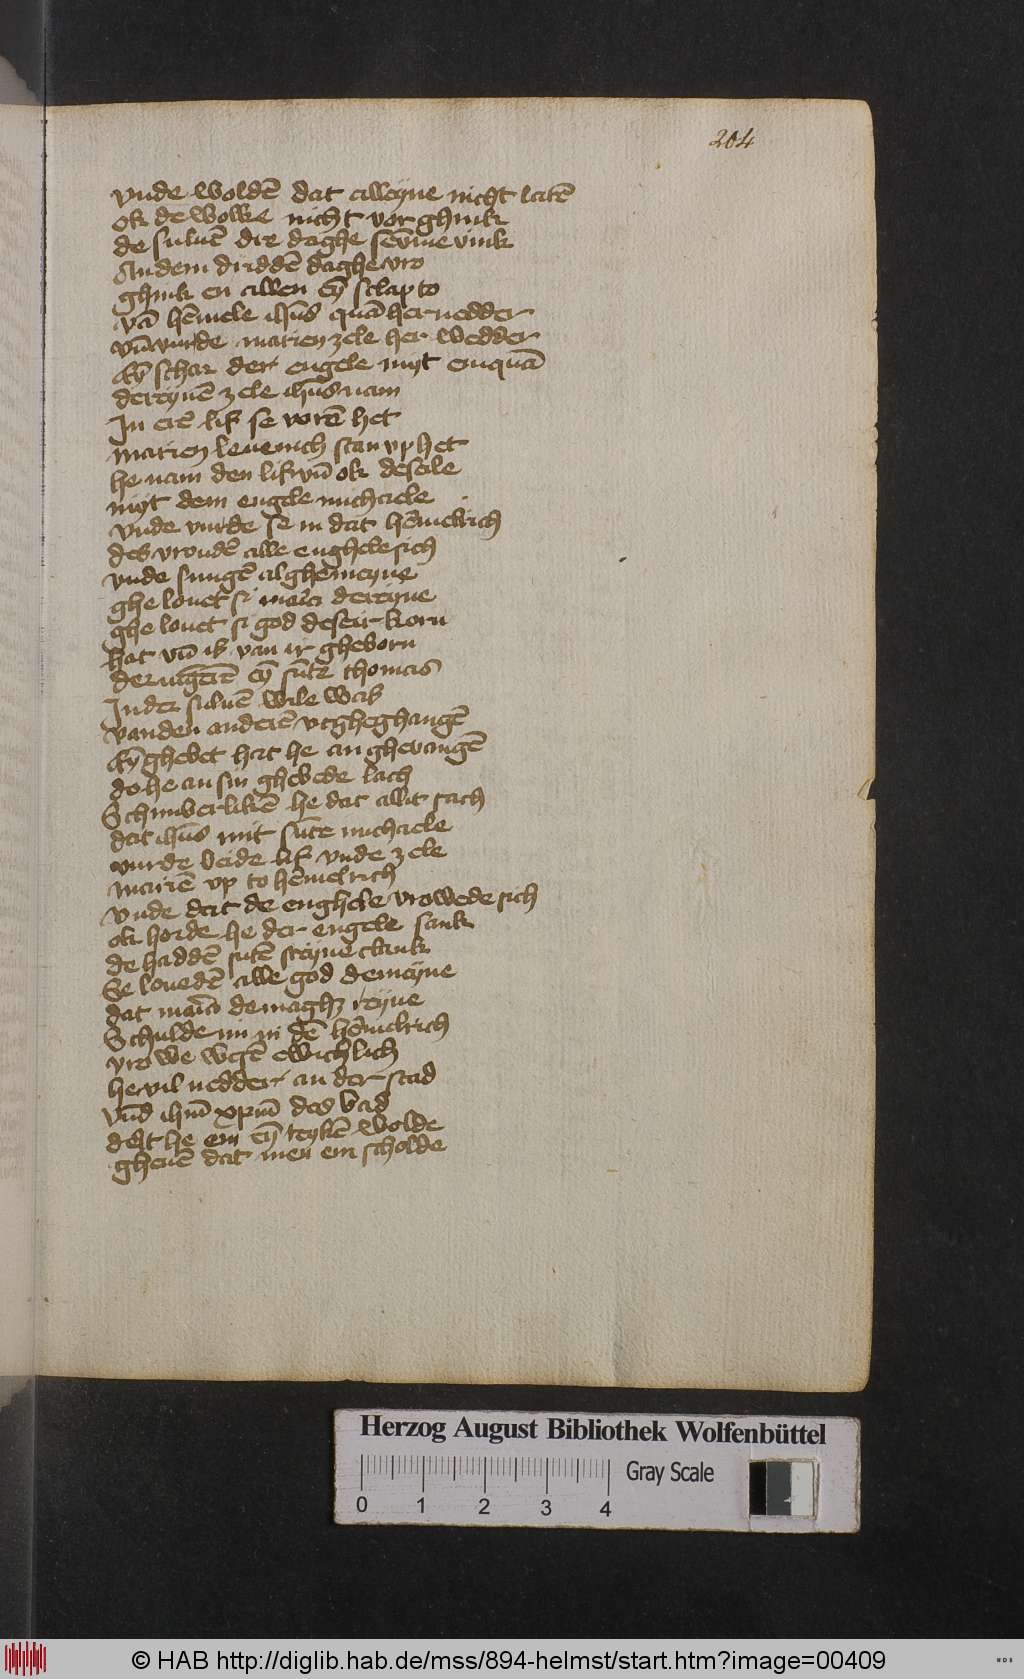 204
vnde woldē dat alleyne nicht latē
ok de wolke nicht vor ghink
de suluē dre daghe
An dem driddē daghe vro
ghink en allen eȳ slap to
vā hēmele ihūs quā her nedder
vn̄ vurde marien zele her wedder
Eȳ schar der engele myt em quā
der reynē zele ihūs nam
In erē lif se vorē het
marien leuenich stan vp het
he nam den lif vn̄ ok de sele
myt dem engele michaele
vnde vurde se in dat hēmelrich
des vroudē alle enghele sich
vnde sungē al ghemeyne
ghe louet si maria de reyne
ghe louet si god de se ir korn
hat vn̄ is van ir gheborn
der iūgerē eȳ sūte thomas
In der suluē wile was
van den anderē vt gheghangē
Eȳ ghebet hat he an ghevangē
do he an sin ghebede lach
Schinberlikē he dat allit sach
dat ihūs mit sūte michaele
vurde beide lif vnde zele
mariē vp to hēmelrich
vnde dat de enghele vrowede sich
ok horde he der engele sank
de haddē sutē reyne clank
Se louedē alle god demeyne
dat maria de maghz reyne
Schulde nu in dē hēmelrich
vrowe wesē ewichlich
he vil nedder an der stad
vn̄d ihm̄ xp̄m des bad
dat he em eȳ teykē wolde
gheuē dat men em scholde
Herzog August Bibliothek Wolfenbüttel
0 1 2 3 4
Gray Scale
© HAB http://diglib.hab.de/mss/894-helmst/start.htm?image=00409